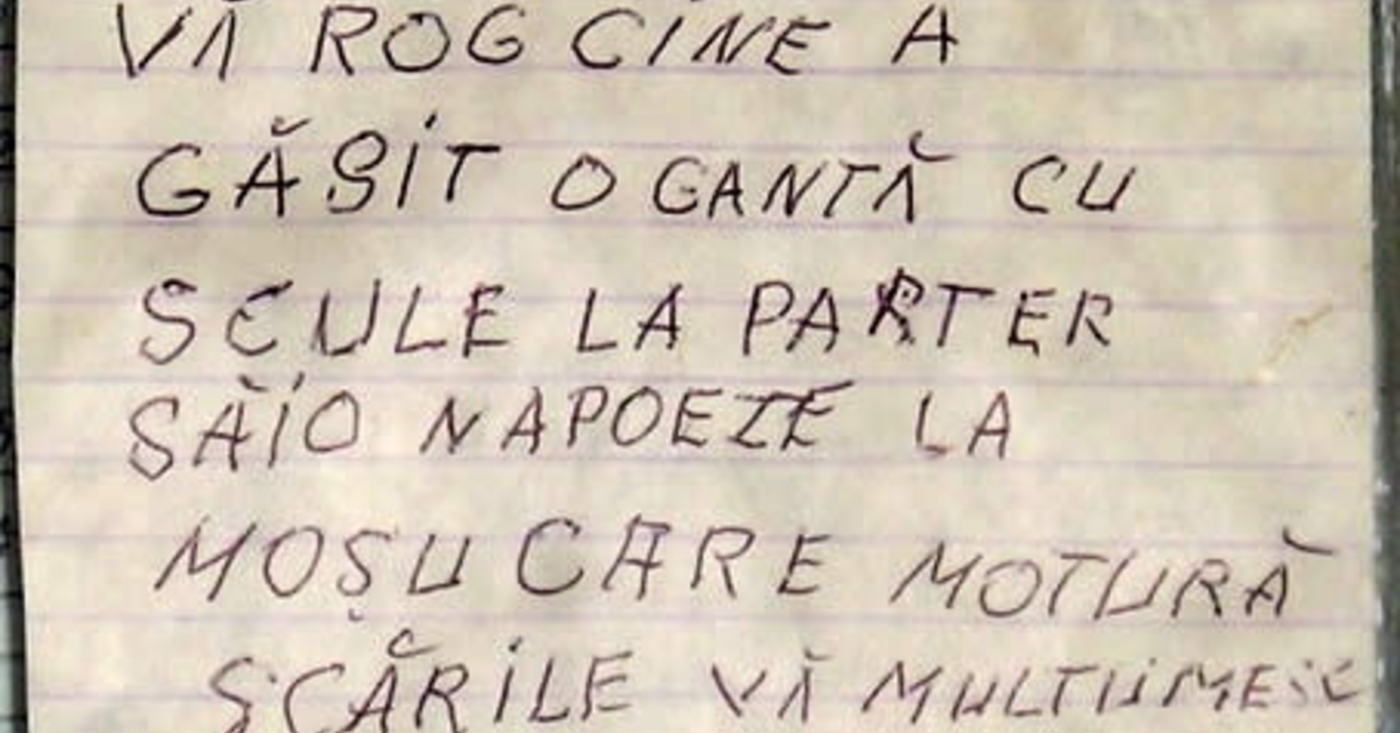 VĂ ROG CINE A
GĂSIT O GANTĂ CU
SCULE LA PARTER
SĂIO NAPOEZE LA
MOȘU CARE MOTURĂ
SCĂRILE VĂ MULTUMESC